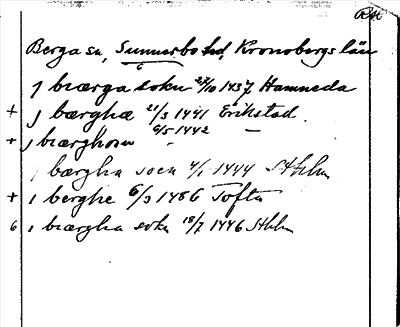 Berga sn, Sunnerbo hd, Kronobergs län
6
j bærga sokn 27/10 1437 Hamneda
+ j bærghæ 21/3 1441 Erikstad.
+ j bærghom 6/5 1442 —
j bærgha socn 4/1 1444 Sthlm
+ i berghe 6/3 1486 Tofta
6 i bærgha sokn 18/7 1446 Sthlm